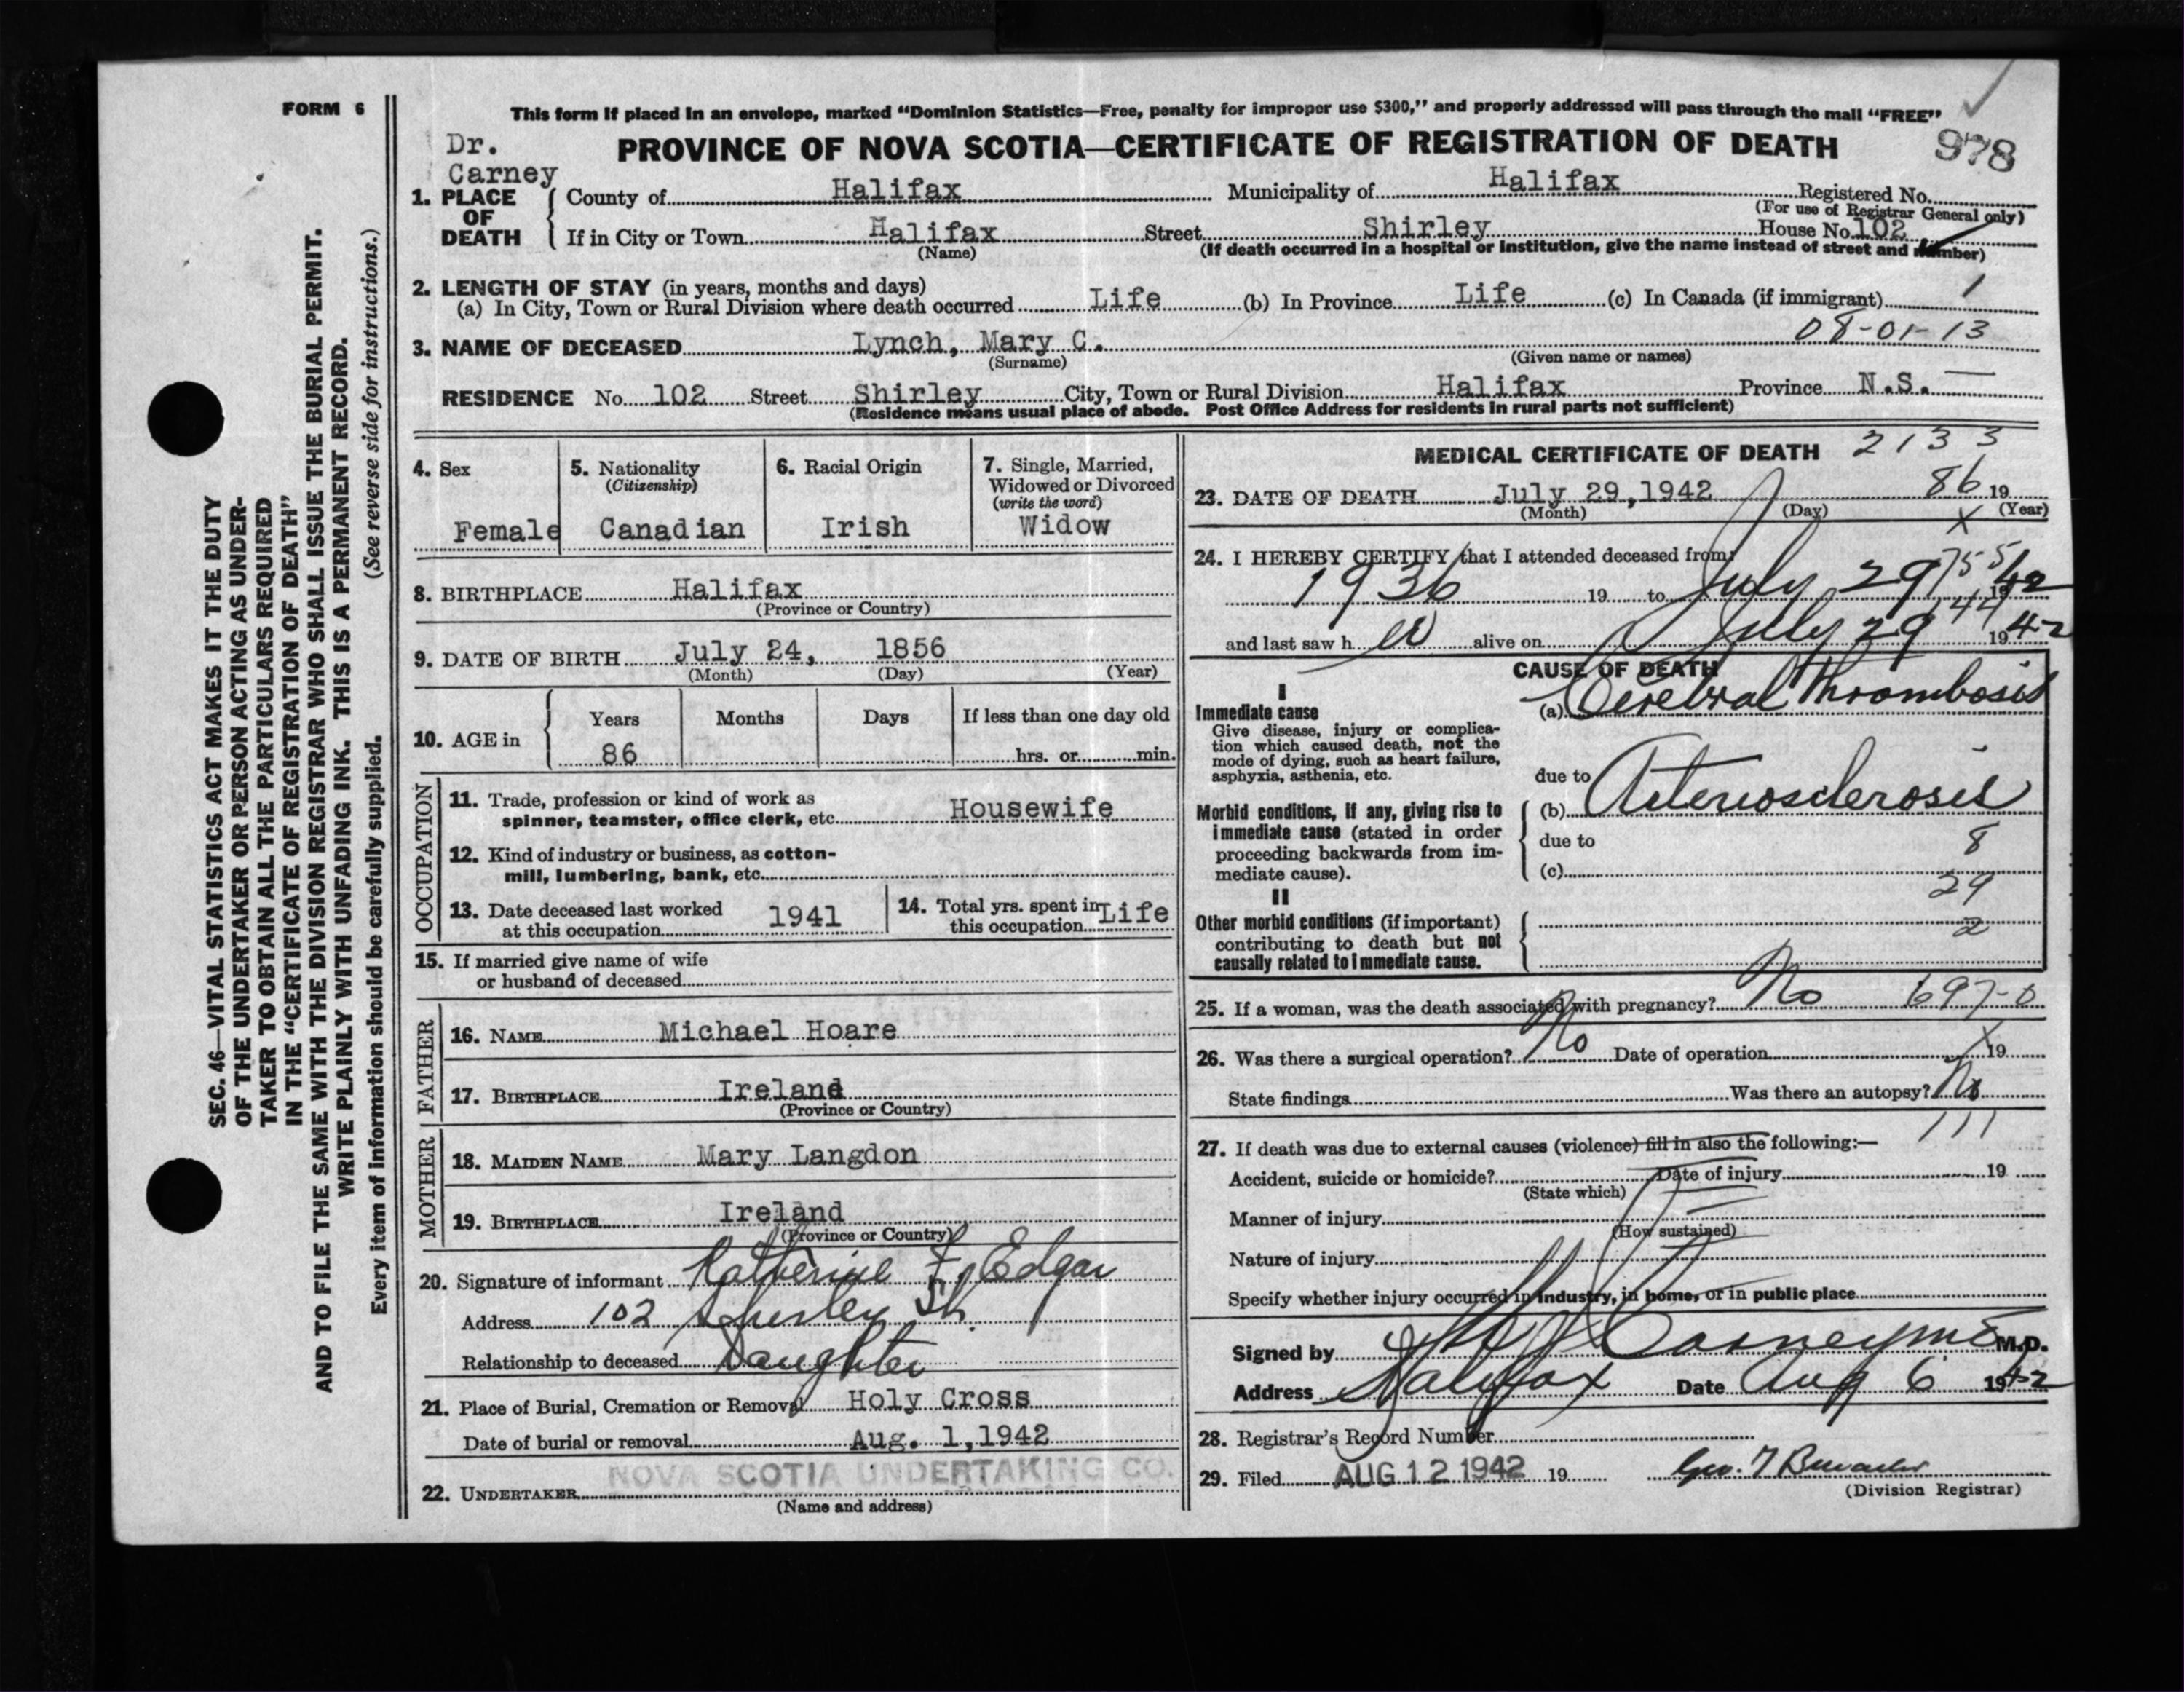 FORM 6
This form if placed in an envelope, marked "Dominion Statistics—Free, penalty for improper use $300," and properly addressed will pass through the mail "FREE"
Dr.
Carney
PROVINCE OF NOVA SCOTIA—CERTIFICATE OF REGISTRATION OF DEATH
978
1. PLACE OF DEATH
County of Halifax Municipality of Halifax Registered No.
(For use of Registrar General only)
If in City or Town Halifax Street Shirley House No. 102
(Name) (If death occurred in a hospital or institution, give the name instead of street and number)
2. LENGTH OF STAY (in years, months and days)
(a) In City, Town or Rural Division where death occurred Life (b) In Province Life (c) In Canada (if immigrant) 1
08-01-13
3. NAME OF DECEASED Lynch, Mary C.
(Surname) (Given name or names)
RESIDENCE No. 102 Street Shirley City, Town or Rural Division Halifax Province N.S. —
(Residence means usual place of abode. Post Office Address for residents in rural parts not sufficient)
4. Sex
Female
5. Nationality
(Citizenship)
Canadian
6. Racial Origin
Irish
7. Single, Married,
Widowed or Divorced
(write the word)
Widow
8. BIRTHPLACE Halifax
(Province or Country)
9. DATE OF BIRTH July 24, 1856
(Month) (Day) (Year)
10. AGE in
Years Months Days If less than one day old
86 hrs. or min.
OCCUPATION
11. Trade, profession or kind of work as
spinner, teamster, office clerk, etc. Housewife
12. Kind of industry or business, as cotton-
mill, lumbering, bank, etc.
13. Date deceased last worked
at this occupation 1941
14. Total yrs. spent in
this occupation Life
15. If married give name of wife
or husband of deceased
FATHER
16. NAME Michael Hoare
17. BIRTHPLACE Ireland
(Province or Country)
MOTHER
18. MAIDEN NAME Mary Langdon
19. BIRTHPLACE Ireland
(Province or Country)
20. Signature of informant Katherine F. Edgar
Address 102 Shirley St.
Relationship to deceased Daughter
21. Place of Burial, Cremation or Removal Holy Cross
Date of burial or removal Aug. 1,1942
22. UNDERTAKER NOVA SCOTIA UNDERTAKING CO.
(Name and address)
MEDICAL CERTIFICATE OF DEATH 2133
23. DATE OF DEATH July 29,1942 86 19
(Month) (Day) (Year)
X
24. I HEREBY CERTIFY that I attended deceased from:
1936 19 to July 29 1942
and last saw h er alive on July 29 1942
CAUSE OF DEATH
I
Immediate cause
Give disease, injury or complica-
tion which caused death, not the
mode of dying, such as heart failure,
asphyxia, asthenia, etc.
(a) Cerebral Thrombosis
due to
Morbid conditions, if any, giving rise to
immediate cause (stated in order
proceeding backwards from im-
mediate cause).
(b) Arteriosclerosis
due to 8
(c)
29
II
Other morbid conditions (if important)
contributing to death but not
causally related to immediate cause.
2
25. If a woman, was the death associated with pregnancy? No 697-0
26. Was there a surgical operation? No Date of operation X 19
State findings Was there an autopsy? No
111
27. If death was due to external causes (violence) fill in also the following:—
Accident, suicide or homicide? Date of injury 19
(State which)
Manner of injury
(How sustained)
Nature of injury
Specify whether injury occurred in industry, in home, or in public place
Signed by Carney M.D.
Address Halifax Date Aug 6 1942
28. Registrar's Record Number
29. Filed AUG 12 1942 19
(Division Registrar)
SEC. 46—VITAL STATISTICS ACT MAKES IT THE DUTY
OF THE UNDERTAKER OR PERSON ACTING AS UNDER-
TAKER TO OBTAIN ALL THE PARTICULARS REQUIRED
IN THE "CERTIFICATE OF REGISTRATION OF DEATH"
AND TO FILE THE SAME WITH THE DIVISION REGISTRAR WHO SHALL ISSUE THE BURIAL PERMIT.
WRITE PLAINLY WITH UNFADING INK. THIS IS A PERMANENT RECORD.
Every item of information should be carefully supplied. (See reverse side for instructions.)